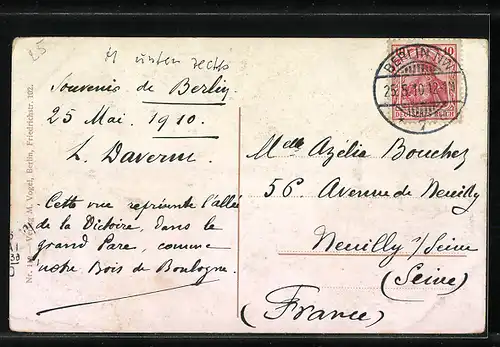 25
unten rechts
Souvenir de Berlin
25 Mai 1910.
L. Daverne
Cette vue représente l'allée
de la Victoire, dans le
grand Parc, comme
notre Bois de Boulogne.
BERLIN
25.5.10.12-1N
10
Melle Azélia Bouchez
56 Avenue de Neuilly
Neuilly s/Seine
(Seine)
(France)
M. Vogel, Berlin, Friedrichstr. 102.